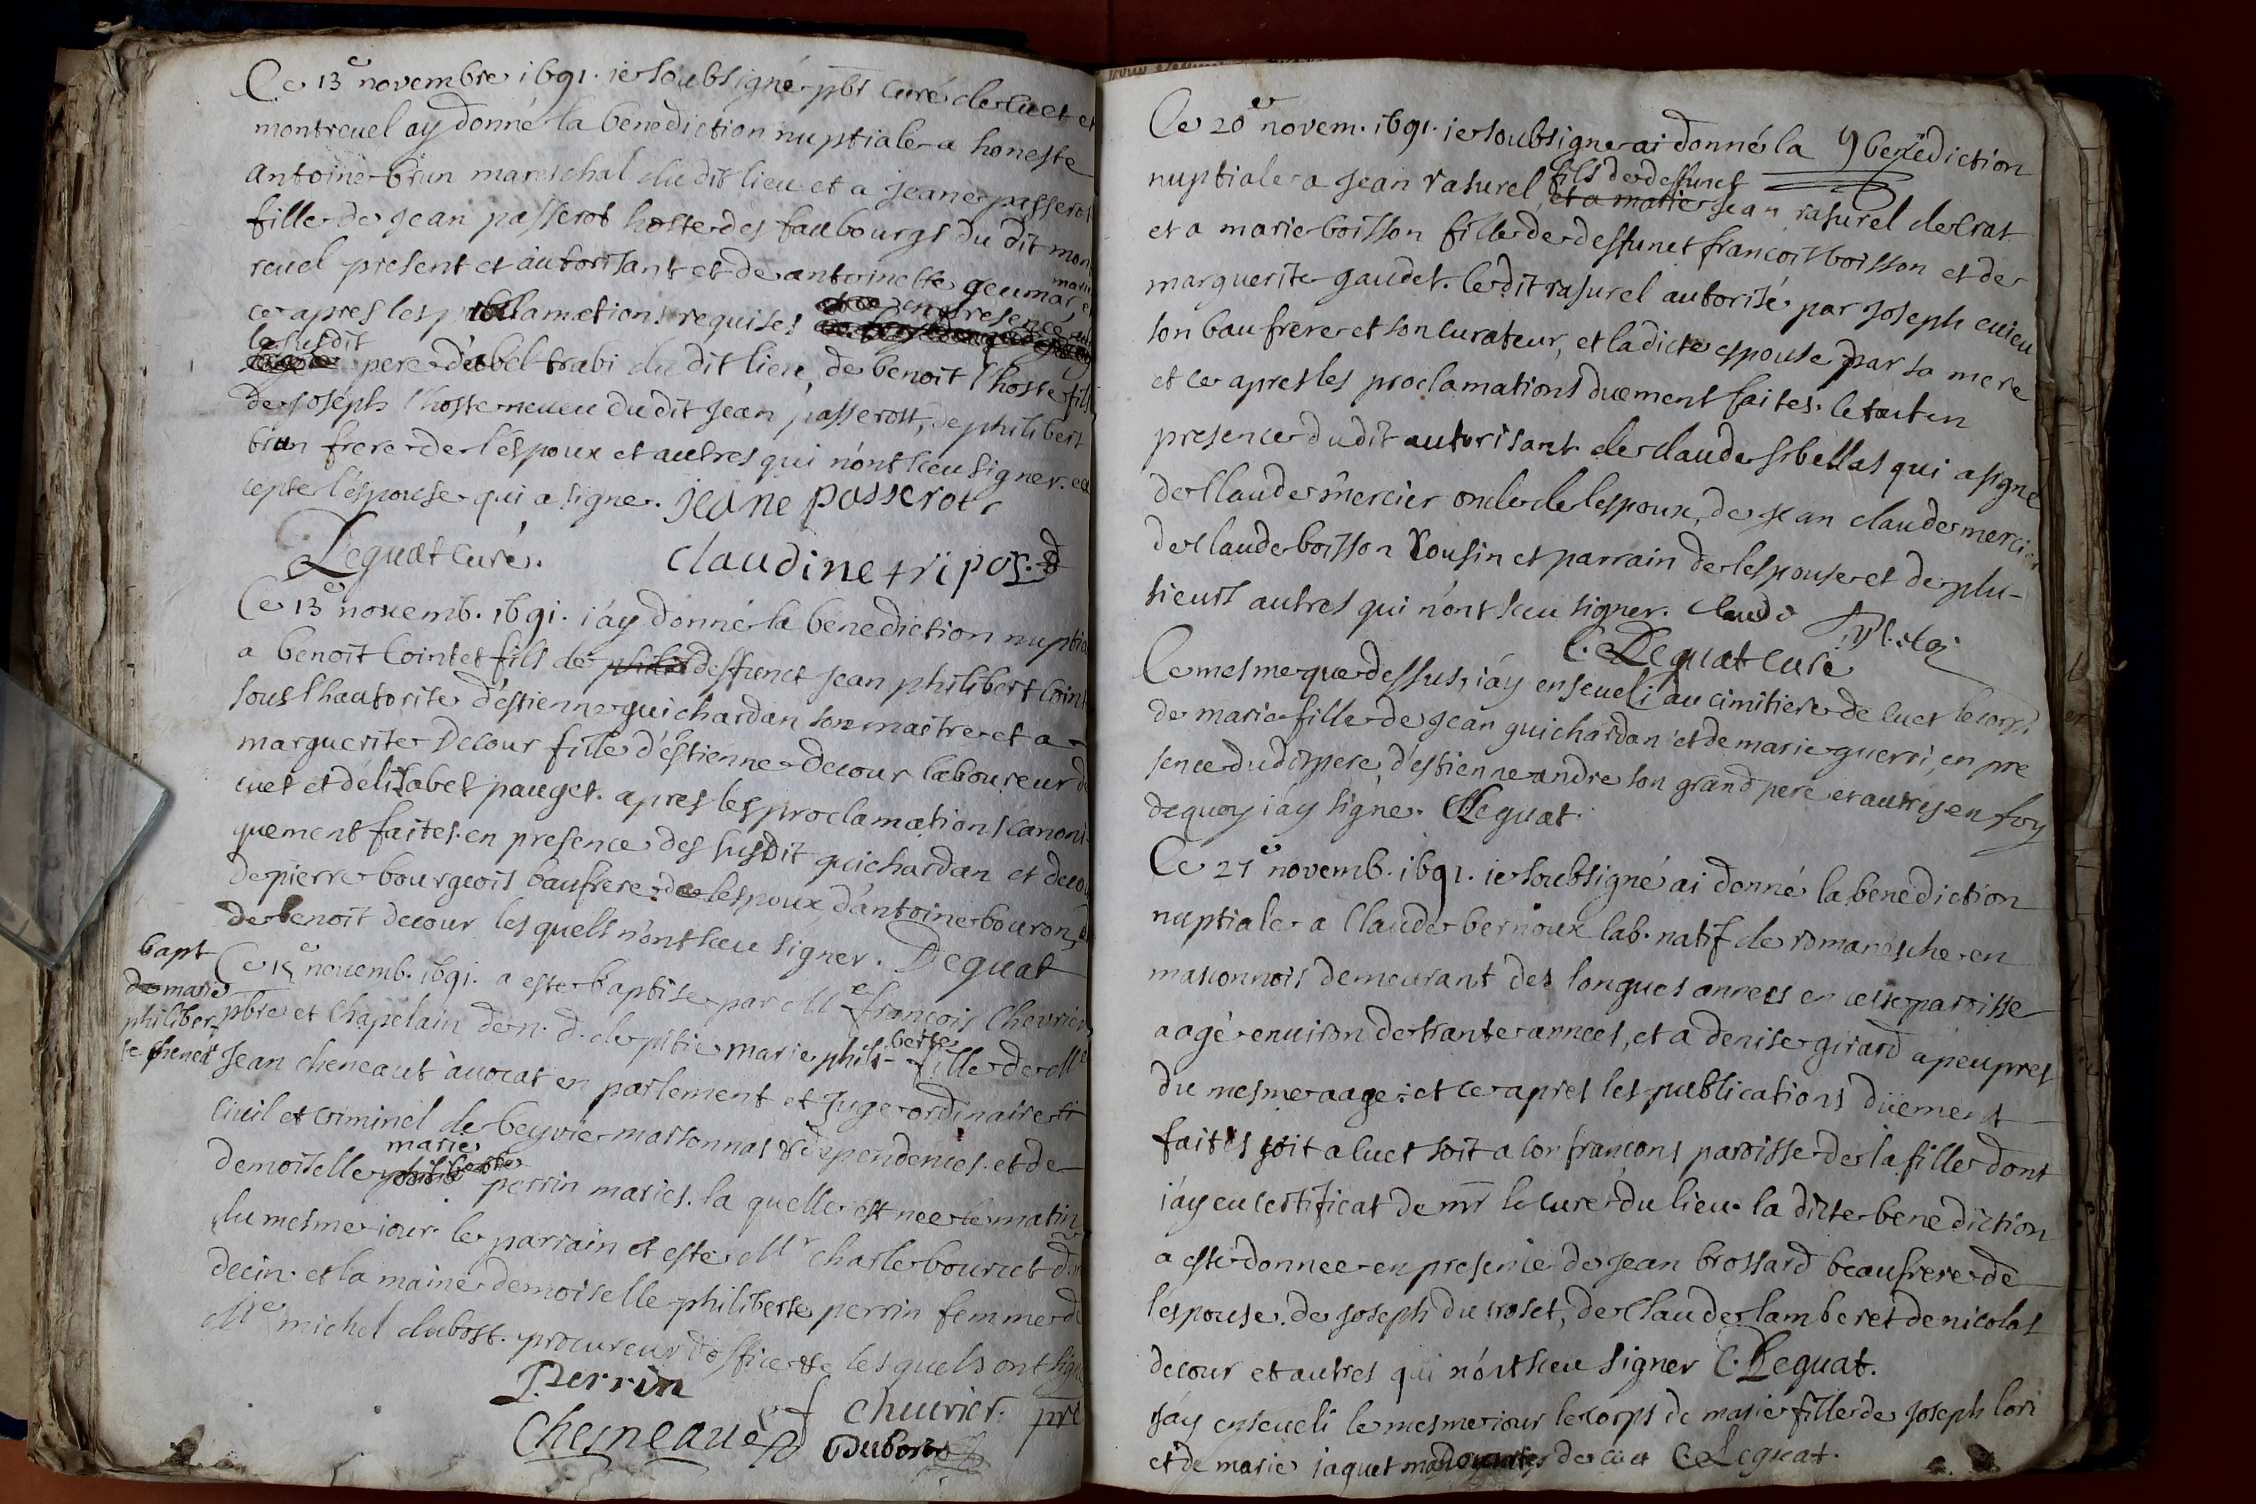 Ce 13e novembre 1691. ie soubsigné pbr curé de cuet et
montreuel ay donné la benediction nuptiale a honeste
Antoine brun mareschal du dit lieu et a jeane passerot
fille de jean passerot hoste des faubourgs du dit mon
reuel present et autorisant et de antoinette geumar,
maries
ce apres les proclamations requises et ce en presence
le susdit
pere d'abel trabi du dit lieu, de benoit l'hoste fils
de joseph l'hoste neueu du dit jean passerott, de philibert
brun frere de l'espoux et autres qui n'ont sceu signer. ex
cepte l'espouse qui a signe. jeane passerot
Lequat curé. claudine tripoz
Ce 13e nouemb. 1691. i'ay donné la benediction nuptia
a benoit Cointet fils de deffunct jean philibert Coint
sous l'hautorite d'estienne guichardan son maitre et a
marguerite Decour fille d'estienne decour laboureur de
cuet et d'elisabet pauget. apres les proclamations canoni
quement faites. en presence des susdit guichardan et decou
de pierre bourgeois baufrere de lespoux d'antoine bouron,
de benoit decour les quels n'ont sceu signer. Lequat
bapt
de marie
philiber
te chenea
Ce 15e nouemb. 1691. a este baptise par Me françois Cheurier
pbre et Chapelain de n. d. de pitie marie phili- berte fille de Me
Jean cheneaut auocat en parlement et juge ordinaire
ciuil et criminel de beyvie marsonnas & dependences. et de
marie
demoiselle philiberte perrin maries. la quelle est nee le matin
du mesme iour. le parrain et este Mr charle bouruet
decin. et la maine demoiselle philiberte perrin femme de
Me michel dubost. procureur d'office les quels ont signe
Perrin
Cheurier. pre
Chesneaue Dubost
Ce 20e novem. 1691. ie soubsigne ai donné la benediction
nuptiale a jean rasurel fils de deffunct
et a marie jean rasurel de crat
et a marie boisson fille de deffunct françois boisson et de
marguerite gaudet. le dit rasurel autorisé par joseph cuieu
son baufrere et son curateur, et la dicte espouse par sa mere
et ce apres les proclamations duement faites. le tout en
presence du dit autorisant de claude sibellas qui a signe
de Claude mercier oncle de lespoux, de jean claude mercier
de claude boisson Cousin et parrain de lespouse et de plu-
sieurs autres qui n'ont sceu signer. Claude
C. Lequat curé
Ce mesme que dessus, i'ay enseueli au cimitiere de cuet le corps
de marie fille de jean guichardan et de marie guerri, en pre
sence du dit pere, d'estienne andre son grand pere et autres en foy
de quoy i'ay signe. C. Lequat.
Ce 27e novemb. 1691. ie soubsigné ai donné la benediction
nuptiale a Claude bernoux lab. natif de romanesche en
masconnois demeurant des longues annees en cette paroisse
aagé enuiron de trante annees, et a denise girard a peu pres
du mesme aage: et ce apres les publications düement
faites soit a cuet soit a confrancons paroisse de la fille dont
i'ay eu certificat de mr le curé du lieu. la dicte benediction
a esté donnee en presence de jean brossard beaufrere de
lespouse. de joseph du troset, de Claude lamberet de nicolas
decour et autres qui n'ont sceu signer C. Lequat.
J'ay enseueli le mesme iour le corps de marie fille de joseph lori
et de marie jaquet de cuet C. Lequat.